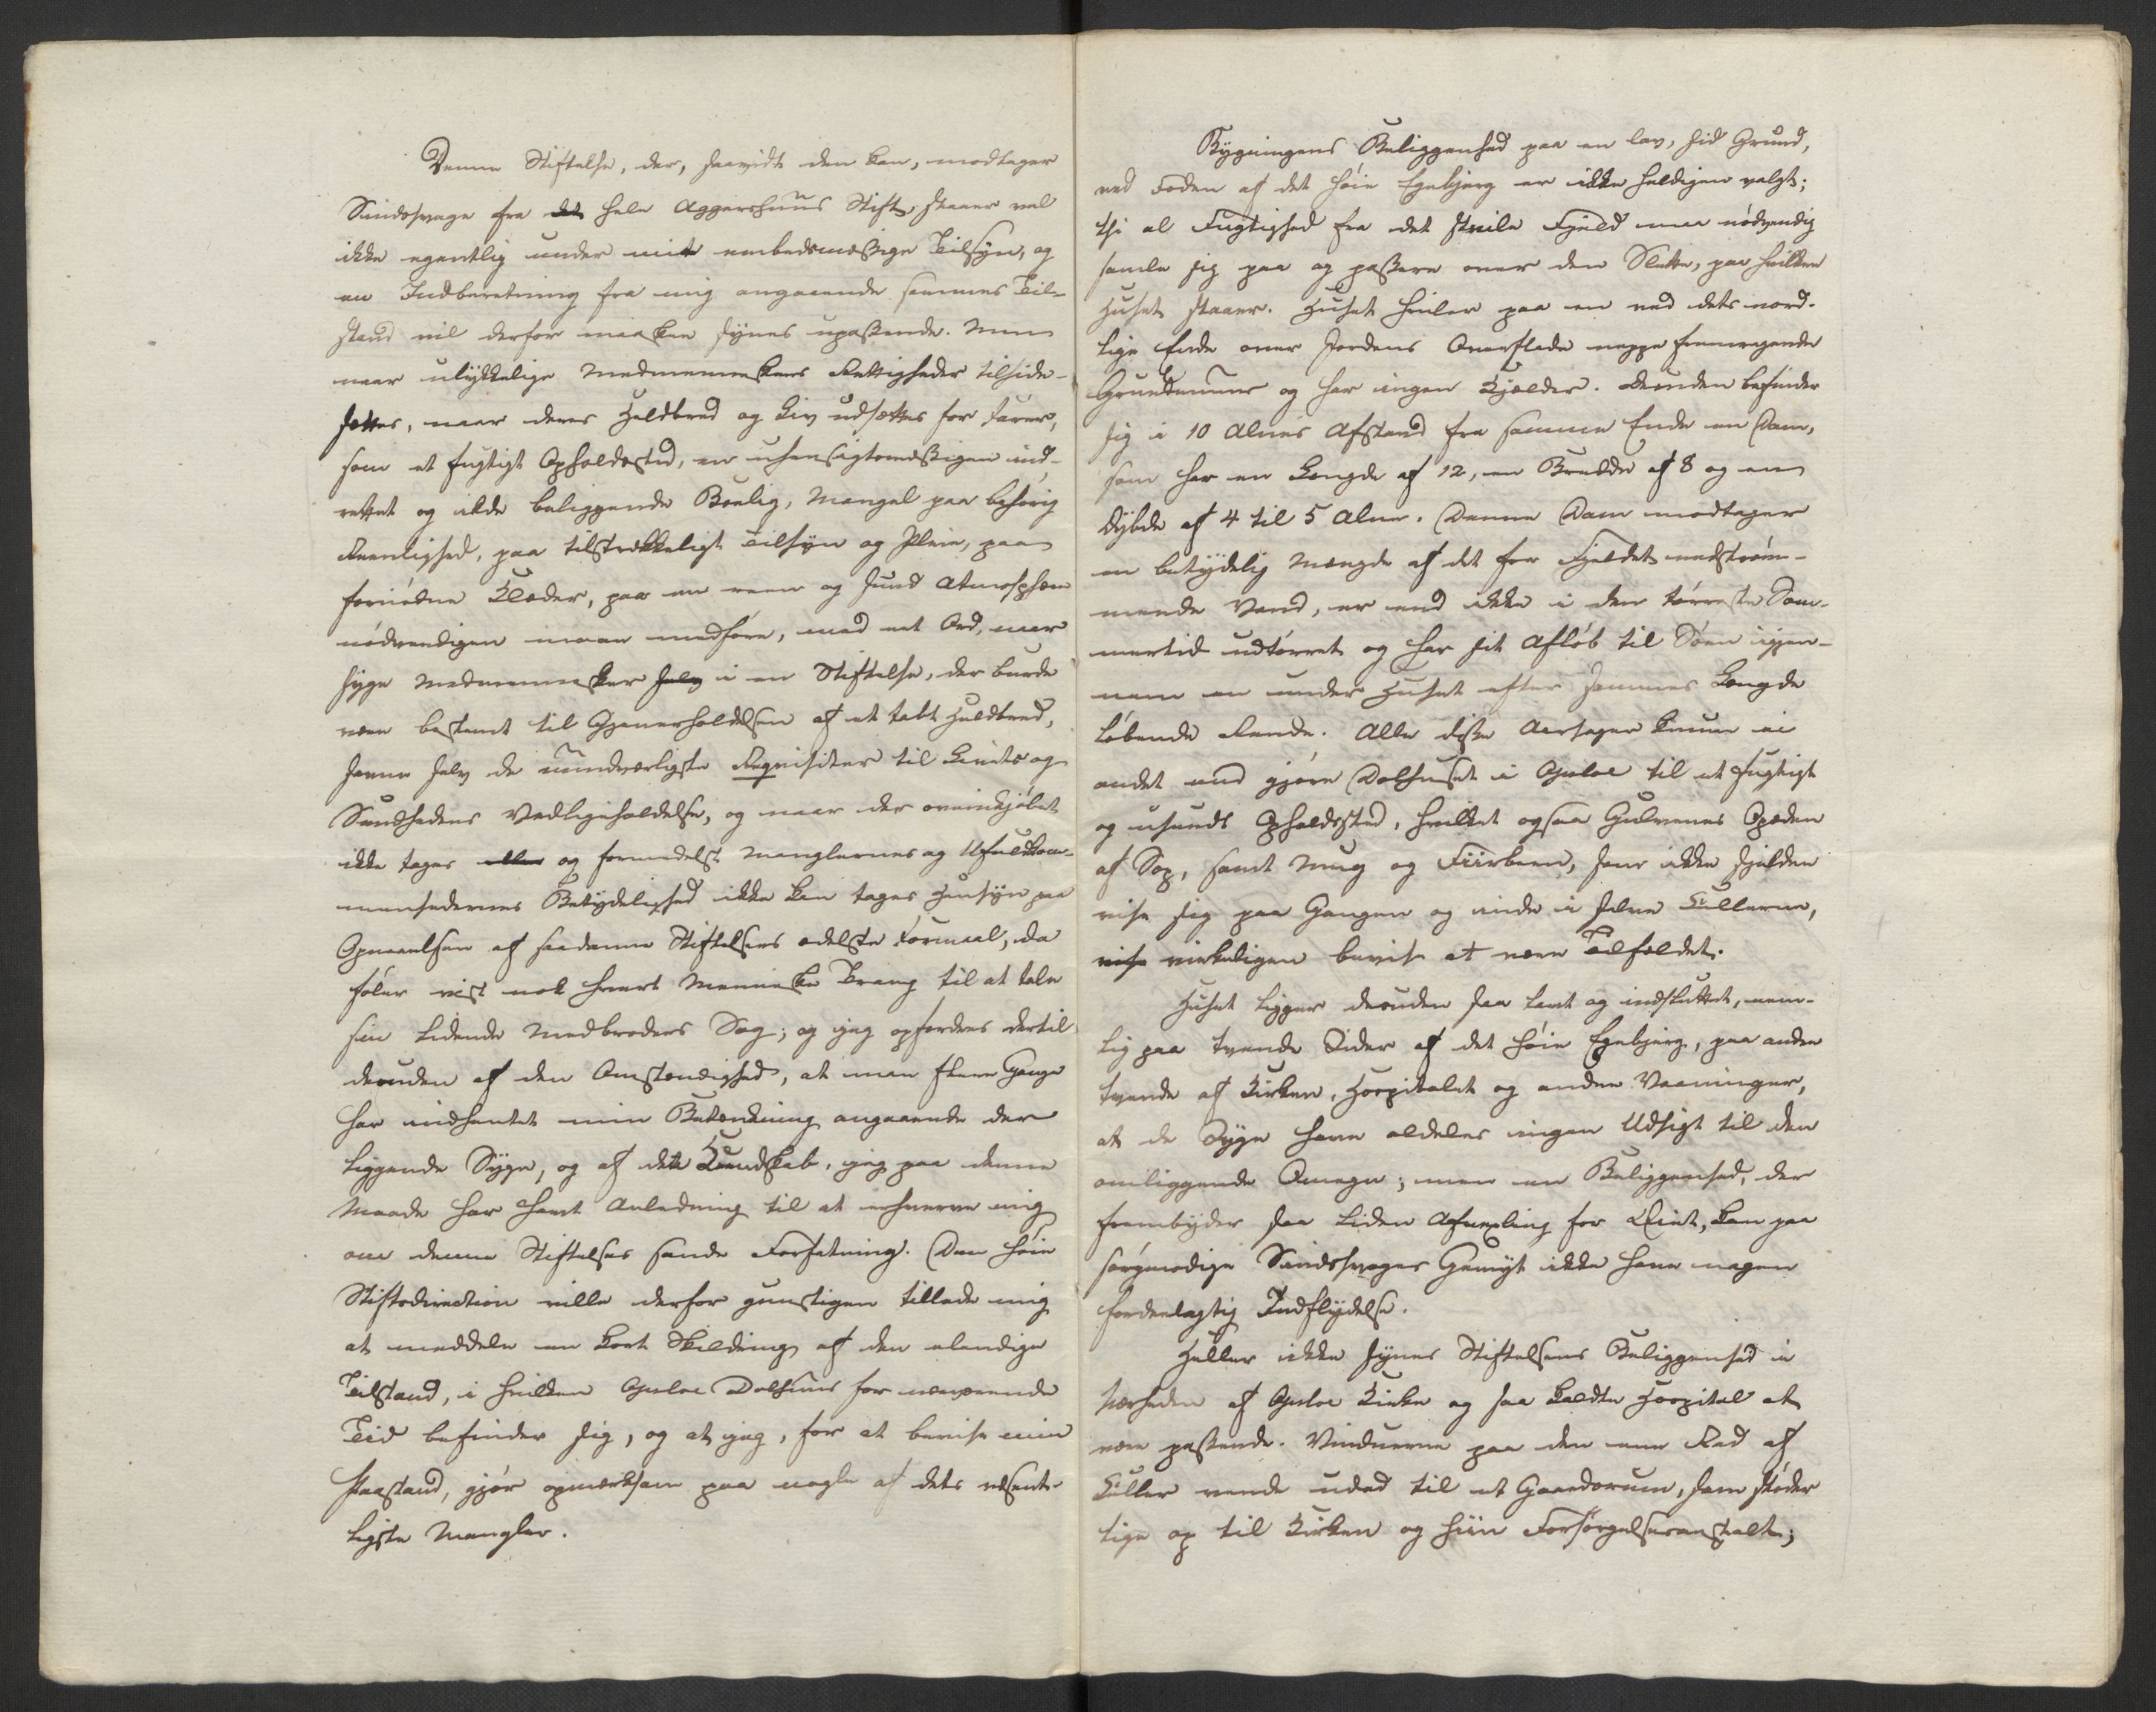 Denne Stiftelse, der, saavidt den kan, modtager
Sindssvage fra det hele Aggershuus Stift, staaer vel
ikke egentlig under mit embedsmæssige Tilsyn, og
en Indberetning fra mig angaaende sammes Til-
stand vil derfor maaskee synes upassende. Men
naar ulykkelige Medmenneskers Rettigheder tilside-
sættes, naar deres Helbred og Liv udsættes for Farer,
som et fugtigt Opholdssted, en uhensigtsmæssigen ind-
rettet og ilde beliggende Boelig, Mangel paa behørig
Reenlighed, paa tilstrækkeligt Tilsyn og Pleie, paa
fornødne Klæder, paa en reen og sund Atmosphære
nødvendigen maae medføre, med eet Ord, naar
syge Medmennesker selv i en Stiftelse, der burde
være bestemt til Gjenerholdelsen af et tabt Helbred,
savne selv de uundværligste Reqvisiter til Livets og
Sundhedens Vedligeholdelse, og naar der ovenikjøbet
ikke tages eller og formedelst Manglernes og Ufuldkom-
menhedernes Betydelighed ikke kan tages Hensyn paa
Opnaaelsen af saadanne Stiftelsers ædelste Formaal, da
føler vist nok hvert Menneske Trang til at tale
sin lidende Medbroders Sag; og jeg opfordres dertil
desuden af den Omstændighed, at man flere Gange
har indhentet min Betænkning angaaende der
liggende Syge, og af det Kundskab, jeg paa denne
Maade har havt Anledning til at erhverve mig
om denne Stiftelses sande Forfatning. Den høie
Stiftsdirection ville derfor gunstigen tillade mig
at meddele en kort Skildring af den elendige
Tilstand, i hvilken Opsloe Dolhuus for nærværende
Tid befinder sig, og at jeg, for at bevise min
Paastand, gjør opmærksom paa nogle af dets væsent-
ligste Mangler.
Bygningens Beliggenhed paa en lav, sid Grund,
ved Foden af det høie Egebjerg er ikke heldigen valgt;
thi al Fugtighed fra det steile Fjeld maa nødvendig
samle sig paa og passere over den Slette, paa hvilken
Huset staaer. Huset hviler paa en ved dets nord-
lige Ende over Jordens Overflade neppe fremragende
Grundmuur og har ingen Kjelder. Desuden befinder
sig i 10 Alnes Afstand fra samme Ende en Dam,
som har en Længde af 12, en Bredde af 8 og en
Dybde af 4 til 5 Alne. Denne Dam modtager
en betydelig Mængde af det fra Fjeldet nedstrøm-
mende Vand, er end ikke i den tørreste Som-
mertid udtørret og har sit Afløb til Søen igjen-
nem en under Huset efter sammes Længde
løbende Rende. Alle disse Aarsager kunne ei
andet end gjøre Dolhuset i Opsloe til et fugtigt
og usundt Opholdssted, hvilket ogsaa Gulvenes Opæden
af Sop, samt Mug og Fiirbeen, som ikke sjelden
vise sig paa Gangen og inde i selve Cellerne,
vise virkeligen bevise at være Tilfældet.
Huset ligger desuden saa lavt og indsluttet, nem-
lig paa tvende Sider af det høie Egebjerg, paa anden
tvende af Kirken, Hospitalet og andre Vaaninger,
at de Syge have aldeles ingen Udsigt til den
omliggende Omegn; men en Beliggenhed, der
frembyder saa liden Afvexling for Øiet, kan paa
sørgmodige Sindssvages Gemyt ikke have nogen
fordeelagtig Indflydelse.
Heller ikke synes Stiftelsens Beliggenhed i
Nærheden af Opsloe Kirke og saa kaldte Hospital at
være passende. Vinduerne paa den ene Rad af
Celler vende udad til et Gaardsrum, som støder
lige op til Kirken og hiin Forsørgelsesanstalt;